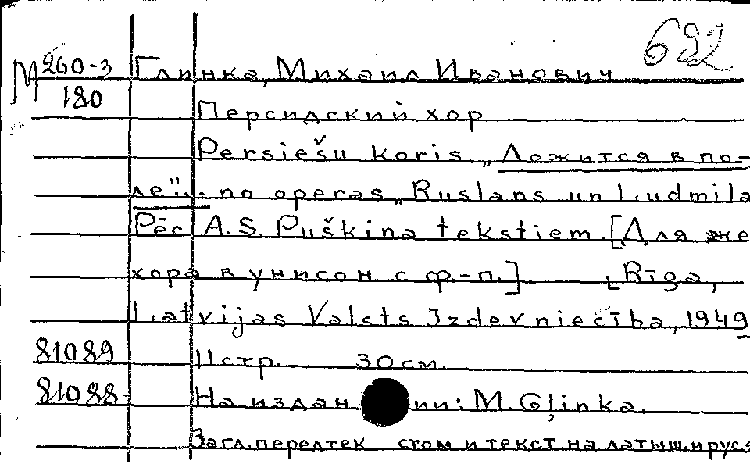 692
М 260-3 Глинка, Михаил Иванович
180 Персидский хор
Persiešu koris „Ложится в по-
ле"... no operas „Ruslans un Ludmila
Pēc A.S. Puškina tekstiem. [Для же
хора в унисон с ф.-п.] Rīga,
Latvijas Valsts Izdevniecība, 1949
81089 11 стр. 30 см.
81088 На издан ии: M. Gļinka.
Загл. перед тек стом и текст на латыш. и русс